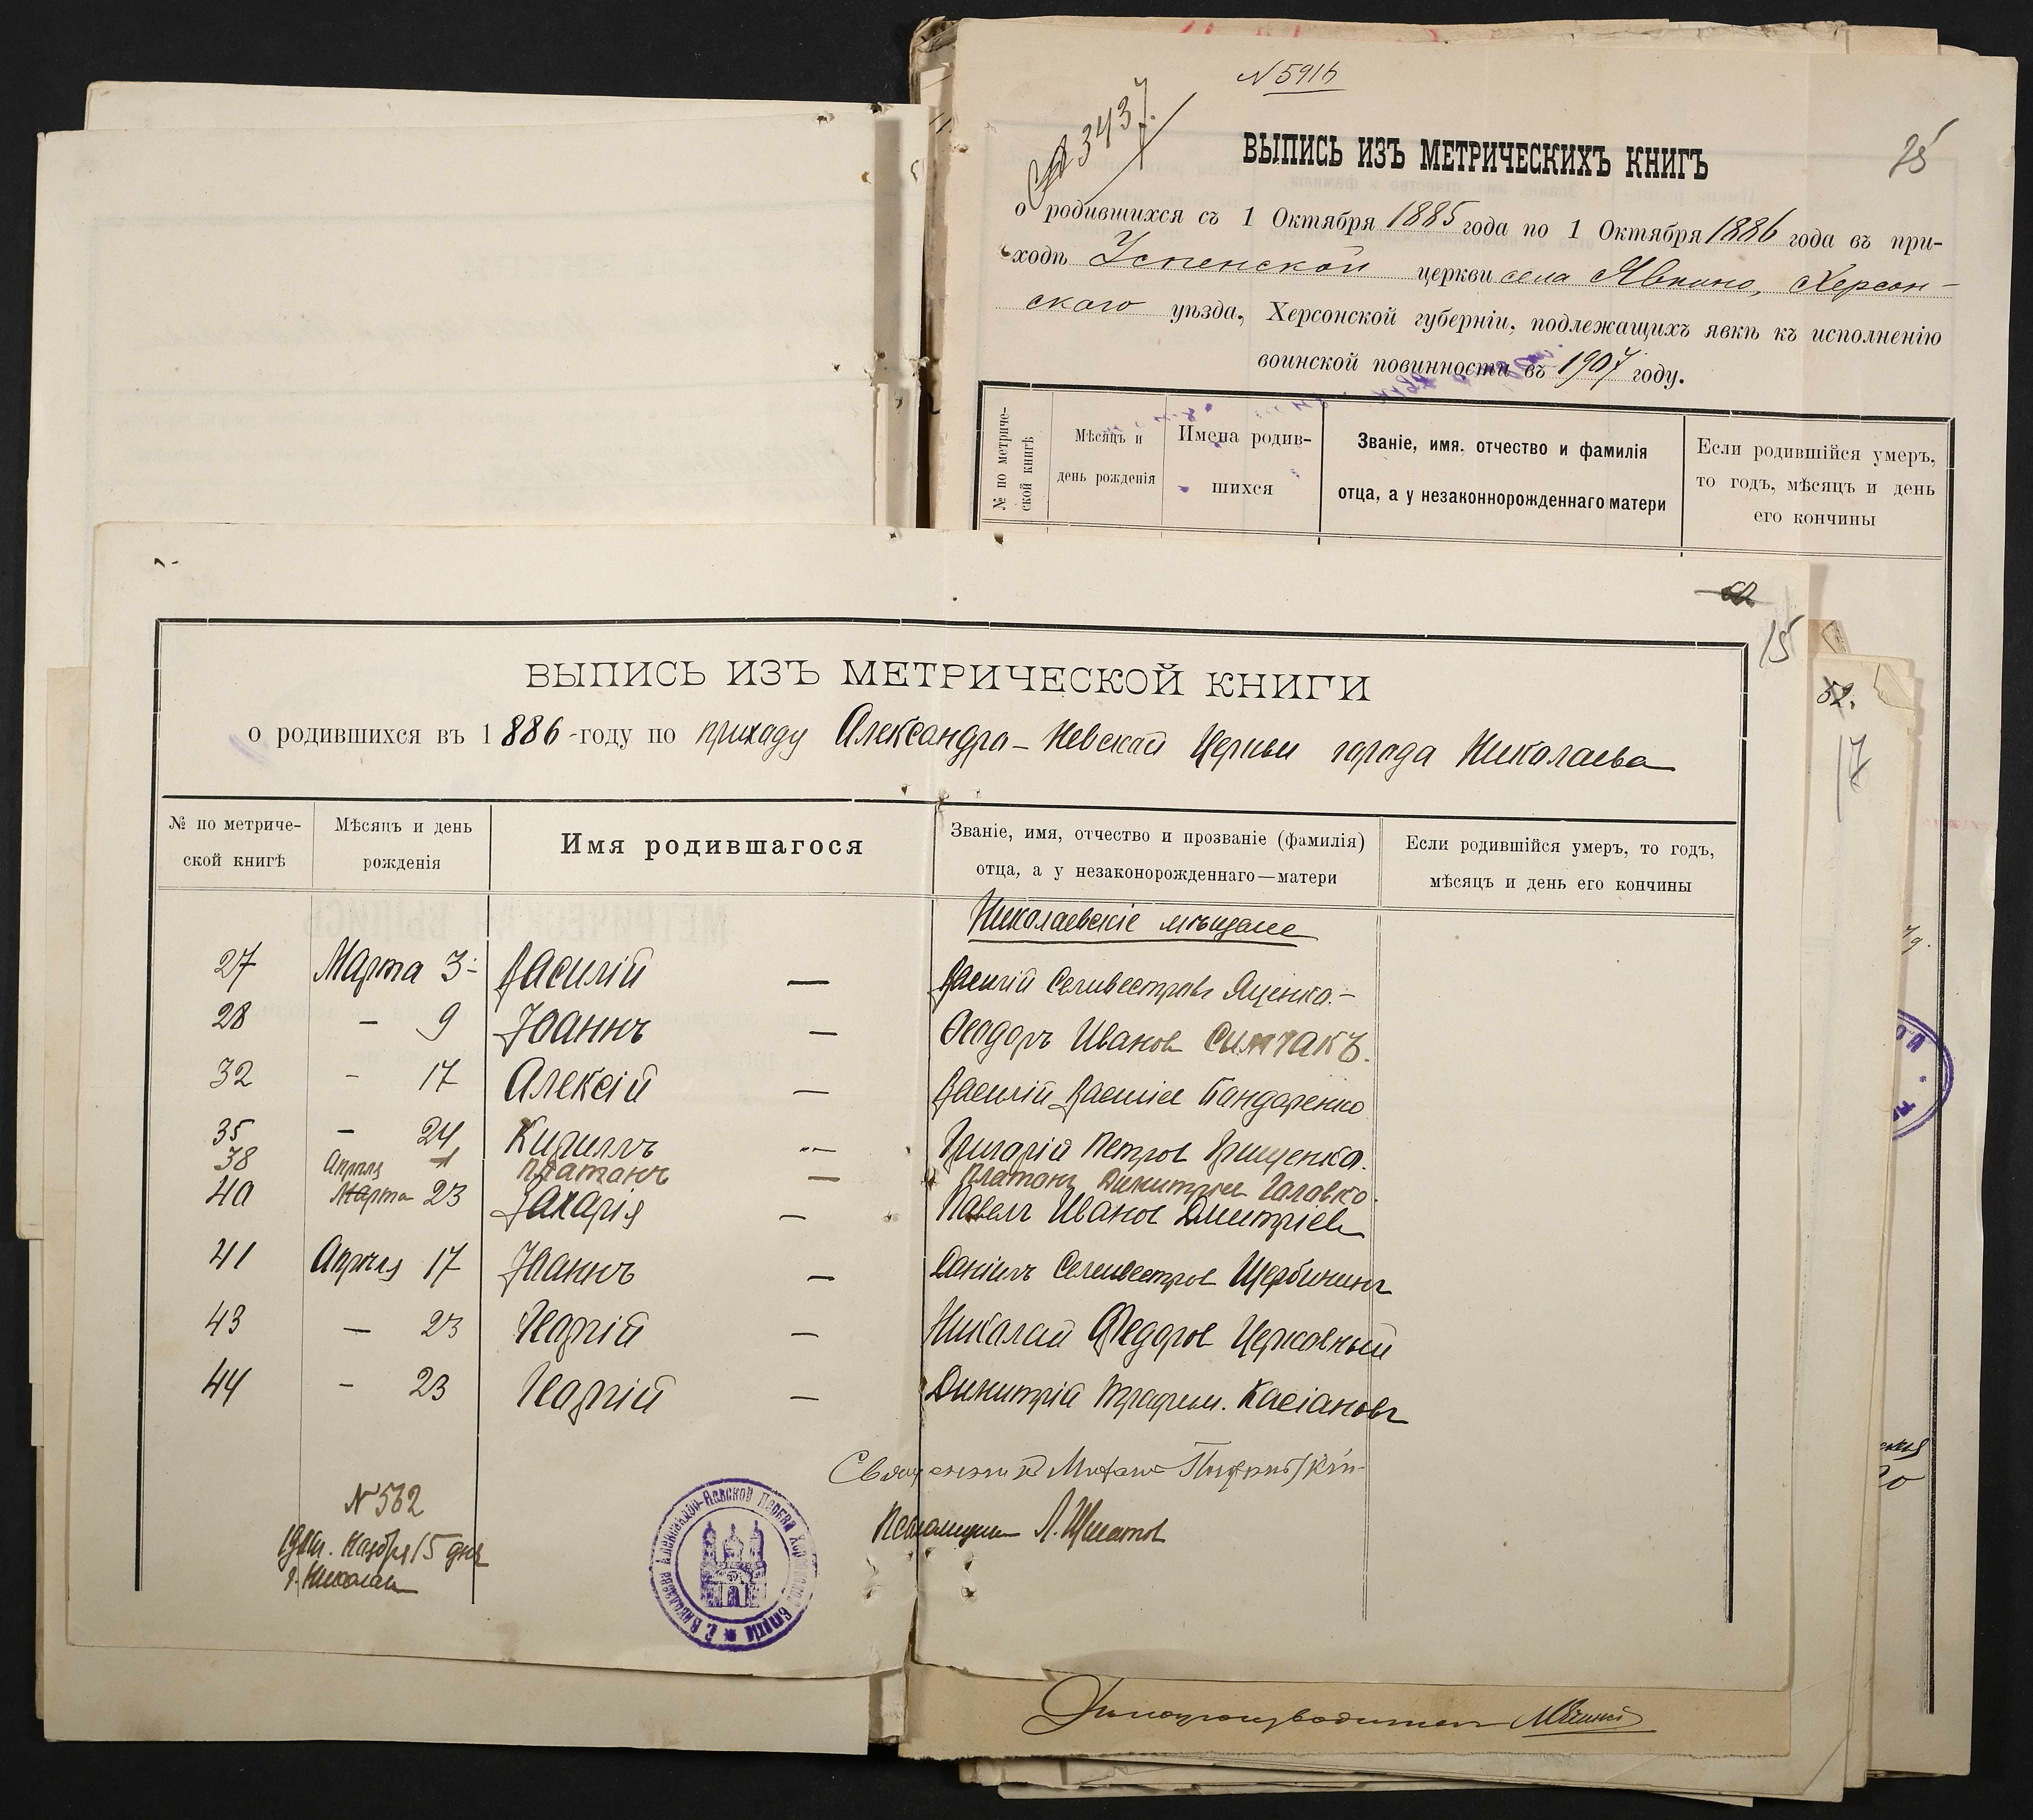 N 5916
3437.
25
ВЫПИСЬ ИЗЪ МЕТРИЧЕСКИХЪ КНИГЪ
о родившихся съ 1 Октября 1885 года по 1 Октября 1886 года въ при-
ходѣ Успенской церкви села Явкино, Херсон-
скаго уѣзда, Херсонской губерніи, подлежащихъ явкѣ къ исполненію
воинской повинности въ 1907 году.
№ по метриче-
ской книгѣ
Мѣсяцъ и
день рожденія
Имена родив-
шихся
Званіе, имя, отчество и фамилія
отца, а у незаконнорожденнаго матери
Если родившійся умеръ,
то годъ, мѣсяцъ и день
его кончины
15
52.
17
ВЫПИСЬ ИЗЪ МЕТРИЧЕСКОЙ КНИГИ
о родившихся въ 1886-году по приходу Александро-Невской Церкви города Николаева
№ по метриче-
ской книгѣ
Мѣсяцъ и день
рожденія
Имя родившагося
Званіе, имя, отчество и прозваніе (фамилія)
отца, а у незаконорожденнаго—матери
Если родившійся умеръ, то годъ,
мѣсяцъ и день его кончины
Николаевскіе мѣщане
27 Марта 3 Василій — Василій Селивестровъ Яценко.
28 — 9 Іоаннъ — Ѳеодоръ Иванов Симчакъ.
32 — 17 Алексій — Василій Васильев Бондаренко
35 — 24 Кириллъ — Григорій Петров Грищенко.
38 Апрѣля 1 Платонъ — Платонъ Димитріев Головко.
40 Марта 23 Захарія — Павелъ Иванов Дмитріев
41 Апрѣля 17 Іоаннъ — Даніилъ Селивестров Щербининъ
43 — 23 Георгій — Николай Федоров Церковный
44 — 23 Георгій — Димитрій Трофим. Касіановъ
Священникъ
N 562
Ноября 15 дня
г. Николаев
Псаломщикъ Л.
Г. Николаева Александро-Невской Церкви Херсонской Епархіи
Дѣлопроизводитель